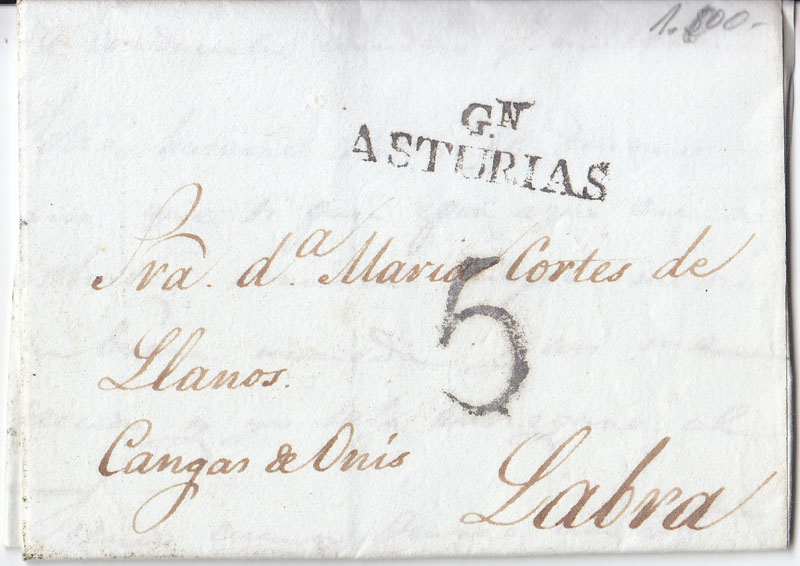 1.800.-
G.N
ASTURIAS
Sra. d.a Maria Cortes de
5
Llanos.
Cangas de Onis
Labra